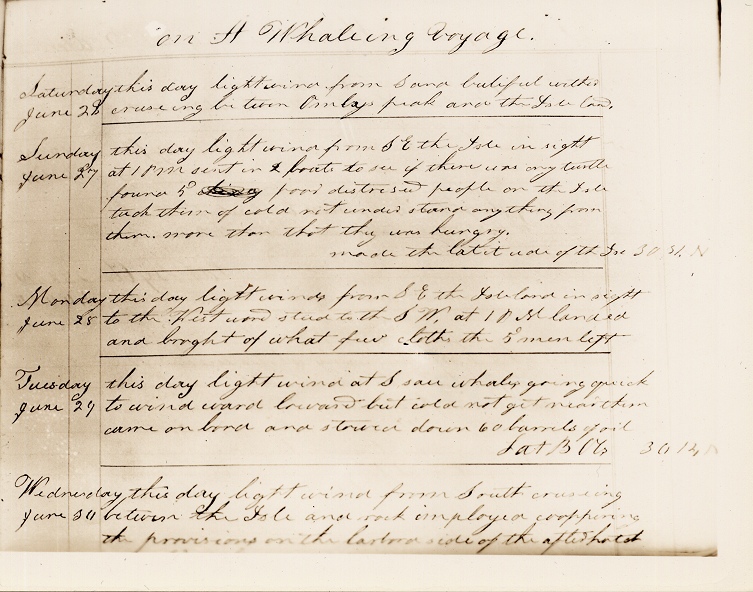 on A Whaleing Voyage.
Saturday this day light wind from S and butiful wether
June 26 cruseing be twen peak and the Isle land.
Sunday this day light wind from S E the Isle in sight
June 27 at 1 P M sent in 2 boats to see if there was any turtle
found 5 poor distressed people on the Isle
took them of cold not under stand any thing from
them more than that they was hungry.
made the latitude of the Isle 30 31 N
Monday this day light winds from S E the Isleland in sight
June 28 to the West ward stud to the S W at 1 P M landed
and broght of what few cloths the 5 men left
Tuesday this day light wind at S saw whales going quick
June 29 to wind ward loward but cold not get near them
came on bord and stowed down 60 barrels of oil
Lat B 30 14 N
Wednesday this day light wind from South cruseing
June 30 betwen the Isle and rock imployed coopering
the provisions on the larbord side of the after hold